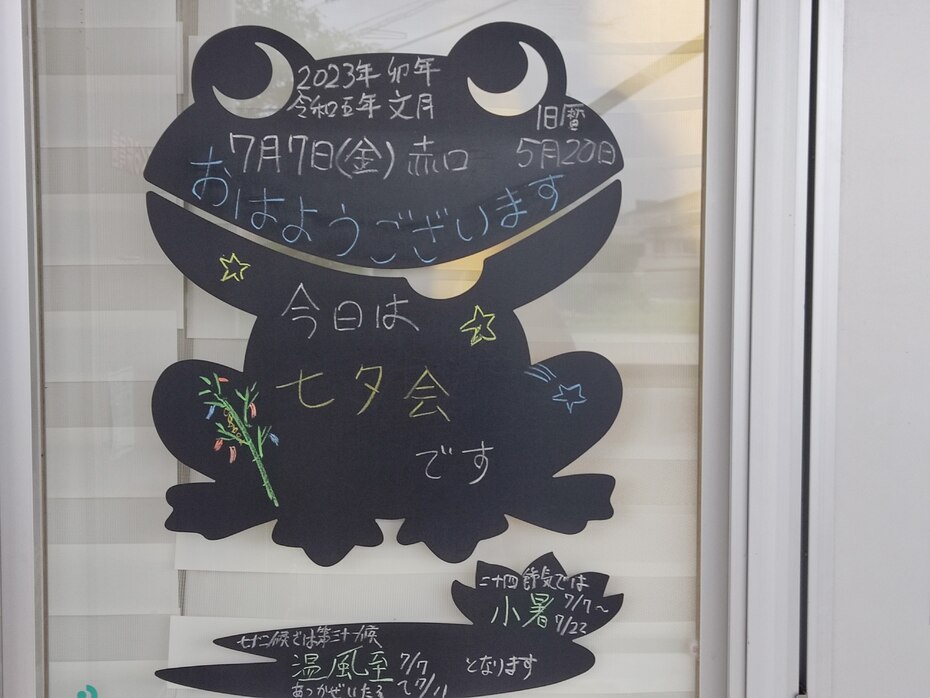 2023年 卯年
令和五年 文月
旧暦
7月7日(金) 赤口
5月20日
おはようございます
今日は
七夕会
です
二十四節気では
小暑 7/7〜
7/22
七十二候では第三十一候
温風至 7/7
あつかぜいたる 〜7/11
となります